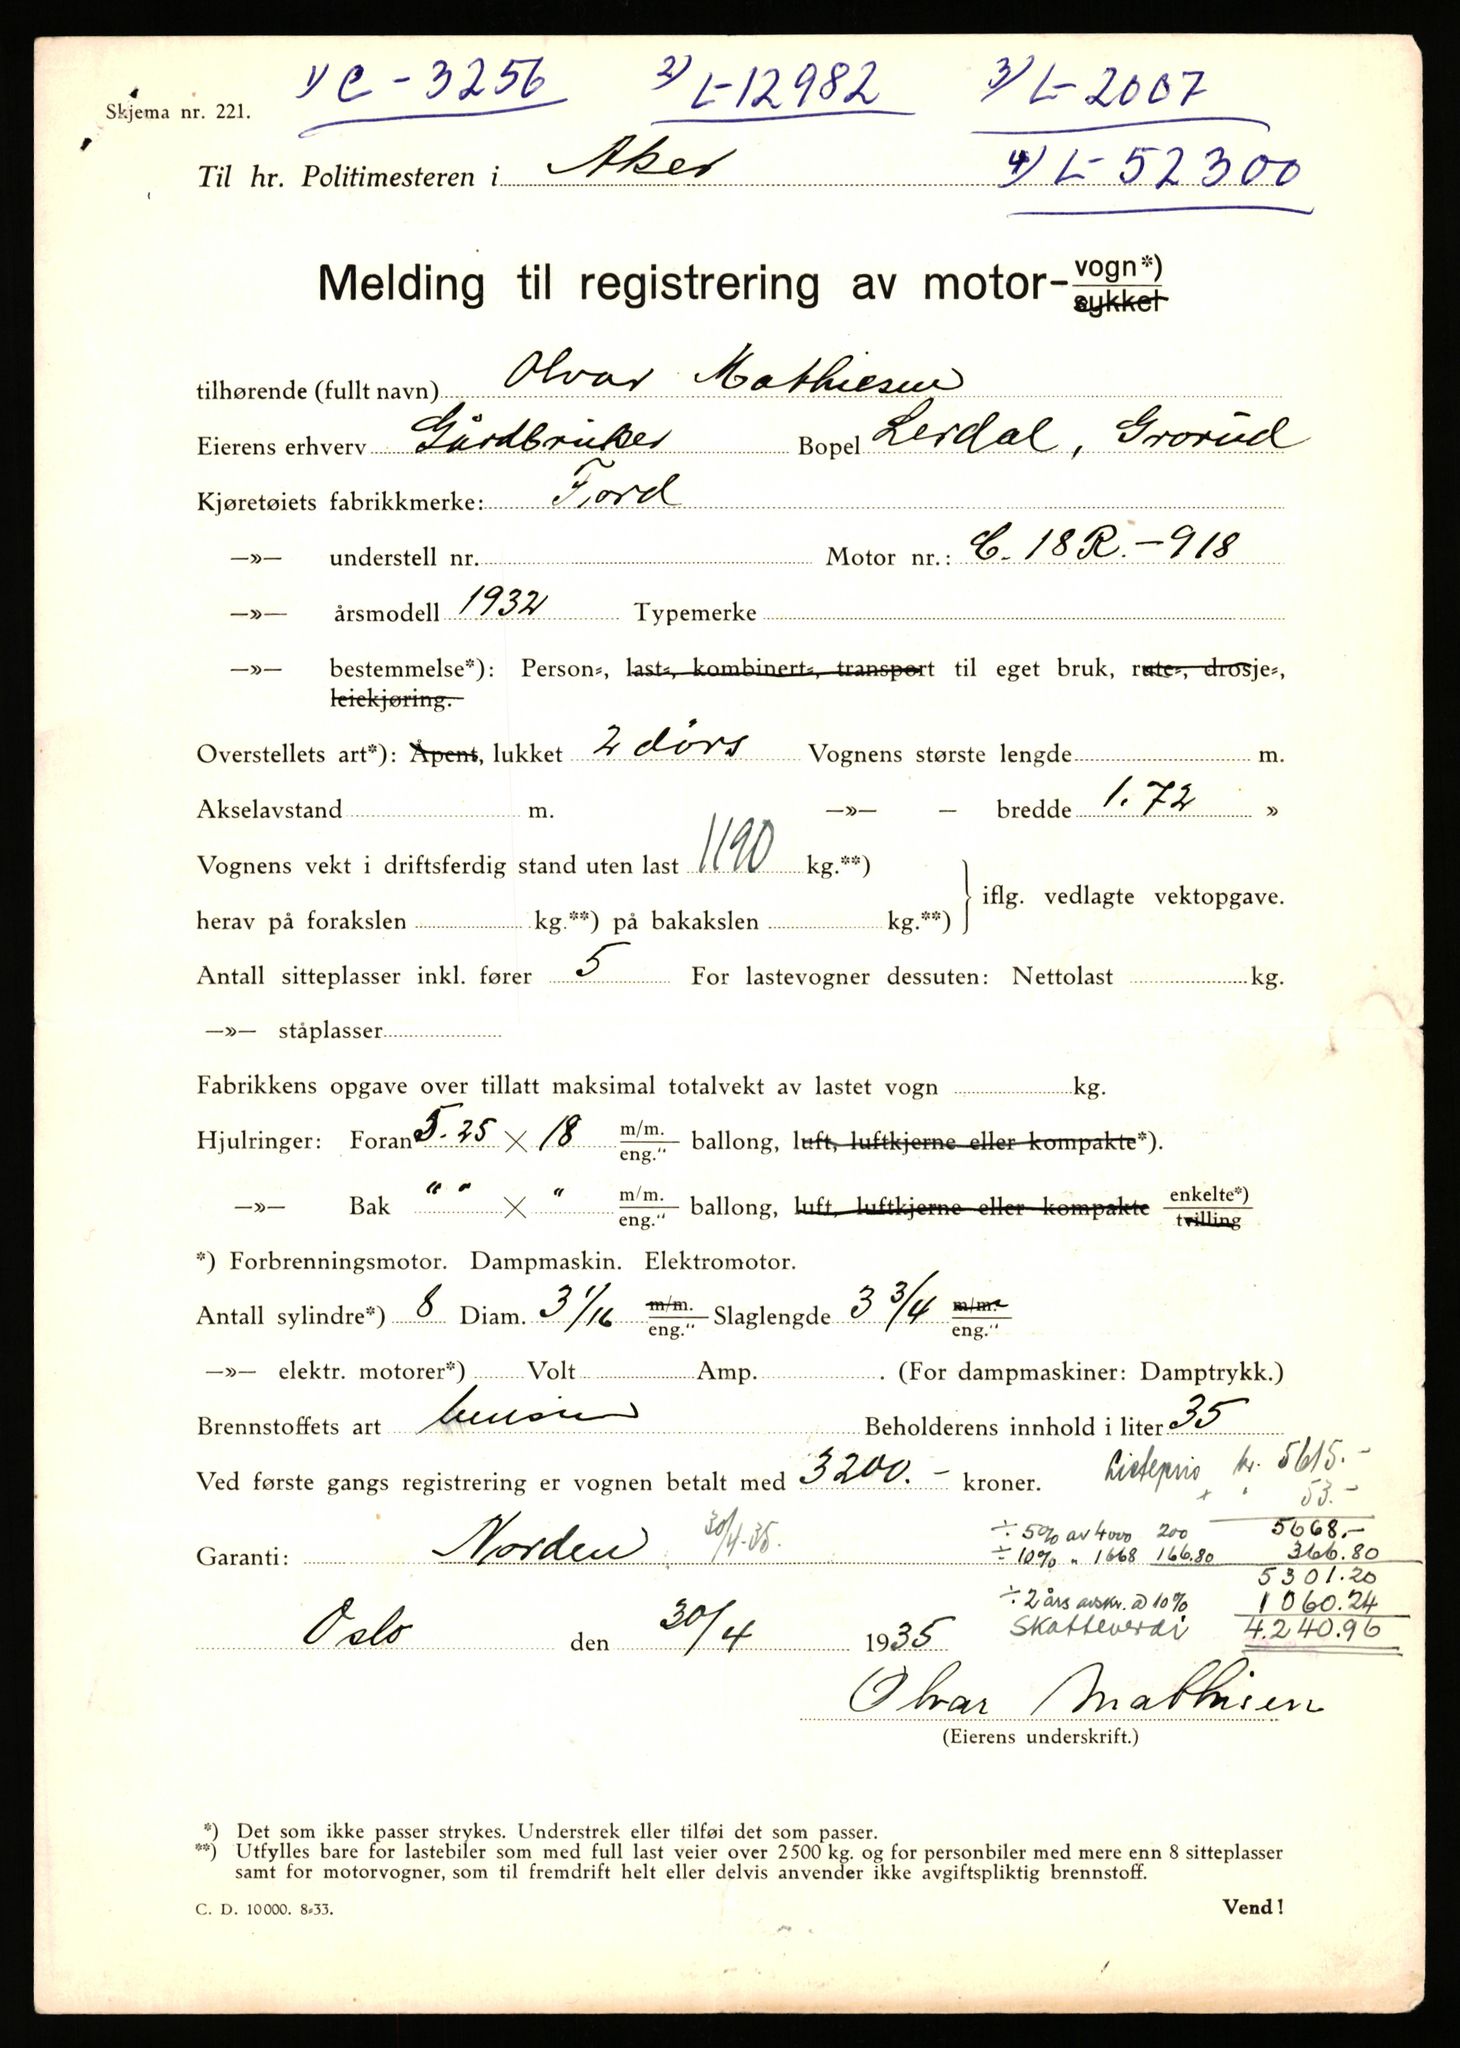 1) C-3256 2) L-12982 3) L-2007
Skjema nr. 221.
Til hr. Politimesteren i Aker 4) L-52300
Melding til registrering av motor- vogn*)
sykkel
tilhørende (fullt navn) Olvar Mathiesen
Eierens erhverv Gårdbruker Bopel Lerdal, Grorud
Kjøretøiets fabrikkmerke: Ford
—»— understell nr. Motor nr.: C. 18 R.-918
—»— årsmodell 1932 Typemerke
—»— bestemmelse*): Person-, last-, kombinert-, transport til eget bruk, rute-, drosje-,
leiekjøring.
Overstellets art*): Åpent, lukket 2 dørs Vognens største lengde m.
Akselavstand m. —»— — bredde 1.72 »
Vognens vekt i driftsferdig stand uten last 1190 kg.**)
iflg. vedlagte vektopgave.
herav på forakslen kg.**) på bakakslen kg.**)
Antall sitteplasser inkl. fører 5 For lastevogner dessuten: Nettolast kg.
—»— ståplasser
Fabrikkens opgave over tillatt maksimal totalvekt av lastet vogn kg.
Hjulringer: Foran 5.25 × 18 m/m. eng." ballong, luft, luftkjerne eller kompakte*).
—»— Bak " " × " m/m. eng." ballong, luft, luftkjerne eller kompakte enkelte*) tvilling
*) Forbrenningsmotor. Dampmaskin. Elektromotor.
Antall sylindre*) 8 Diam. 3 1/16 m/m. eng." Slaglengde 3 3/4 m/m. eng."
—»— elektr. motorer*) Volt Amp. . (For dampmaskiner: Damptrykk.)
Brennstoffets art bensin Beholderens innhold i liter 35
Ved første gangs registrering er vognen betalt med 3200.- kroner. Listepris kr. 5615.-
+ " 53.-
5668.-
÷ 5% av 4000 200
Garanti: Norden 30/4-35. ÷ 10% " 1668 166.80 366.80
5301.20
÷ 2 års avskr. a 10% 1060.24
Oslo den 30/4 1935 Skatteverdi 4.240.96
Olvar Mathisen
(Eierens underskrift.)
*) Det som ikke passer strykes. Understrek eller tilføi det som passer.
**) Utfylles bare for lastebiler som med full last veier over 2500 kg. og for personbiler med mere enn 8 sitteplasser
samt for motorvogner, som til fremdrift helt eller delvis anvender ikke avgiftspliktig brennstoff.
C. D. 10000. 8-33. Vend!